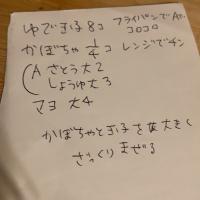 ゆで玉子 8コ フライパンで A in
コロコロ
かぼちゃ 1/4コ レンジでチン
A さとう大2
しょうゆ大3
マヨ 大4
かぼちゃと玉子を 大きく
ざっくりまぜる